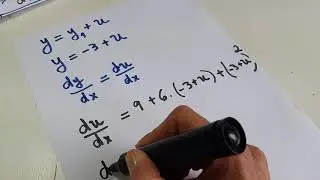 y = y₁ + u
y = -3 + u
dy/dx = du/dx
du/dx = 9 + 6 · (-3+u) + (-3+u)²
d